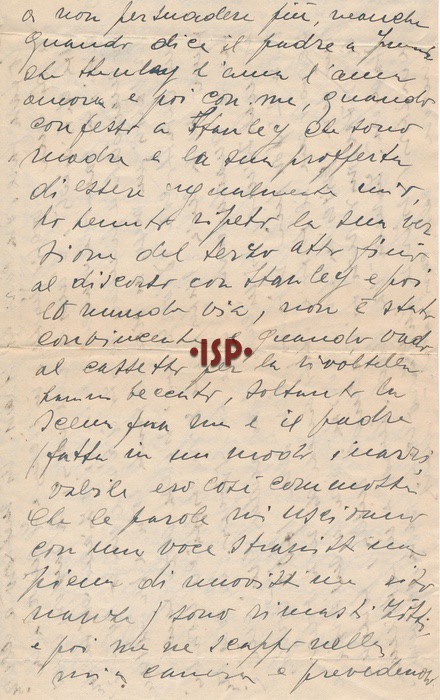 a non persuadere più, neanche
quando dice il padre a
che Stanley l'ama l'ama
ancora e poi con me, quando
confesso a Stanley che sono
madre e la sua profferta
di essere ugualmente mio,
ho tenuto ripeto la sua ver
sione del terzo atto fino
al discorso con Stanley e poi
lo mando via, non è stato
convincente e quando vado
al cassetto per la rivoltella
hanno beccato, soltanto la
scena fra me e il padre
(fatta in un modo inarri
vabile ero così commossa
che le parole mi uscivano
con una voce stranissima
piena di nuovissime riso
nanze) sono rimasti zitti
e poi me ne scappo nella
mia camera e prevedendo
·ISP·